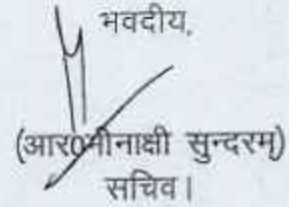 भवदीय,
(आर0मीनाक्षी सुन्दरम्)
सचिव।